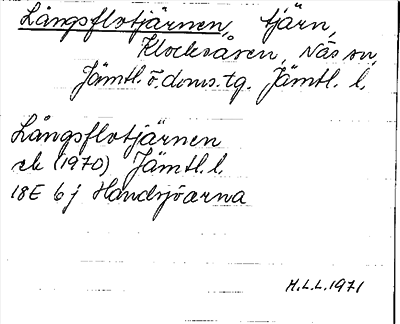 Långsflotjärnen, tjärn,
Klocksåsen, Näs sn,
Jämtl. ö. doms. tg. Jämtl. l.
Långsflotjärnen
ek (1970) Jämtl. l.
18E 6j Handsjöarna
H.L.L. 1971